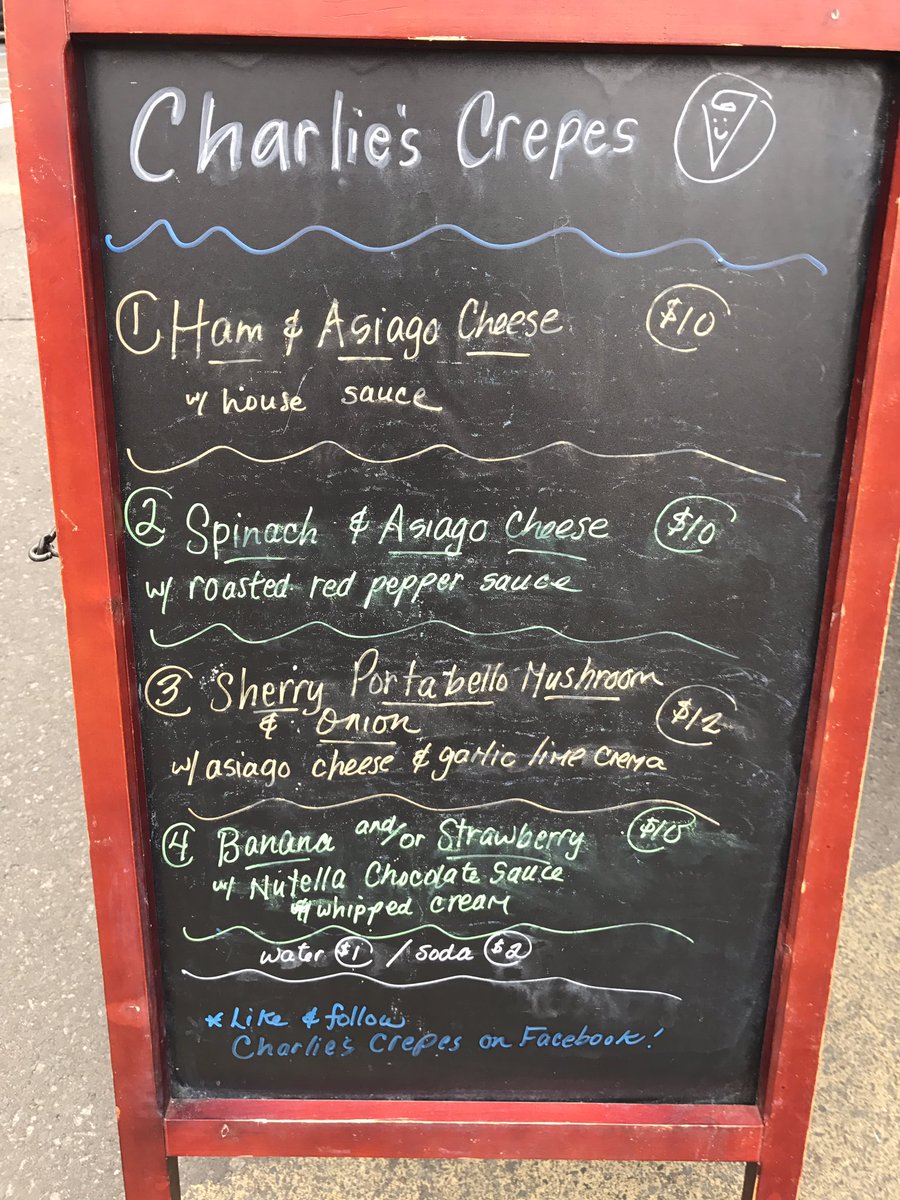 Charlie's Crepes
1 Ham & Asiago Cheese $10
w/ house sauce
2 Spinach & Asiago Cheese $10
w/ roasted red pepper sauce
3 Sherry Portabello Mushroom
& Onion $12
w/ asiago cheese & garlic lime crema
4 Banana and/or Strawberry $10
w/ Nutella Chocolate Sauce
& whipped cream
water $1 / soda $2
* Like & follow
Charlie's Crepes on Facebook!